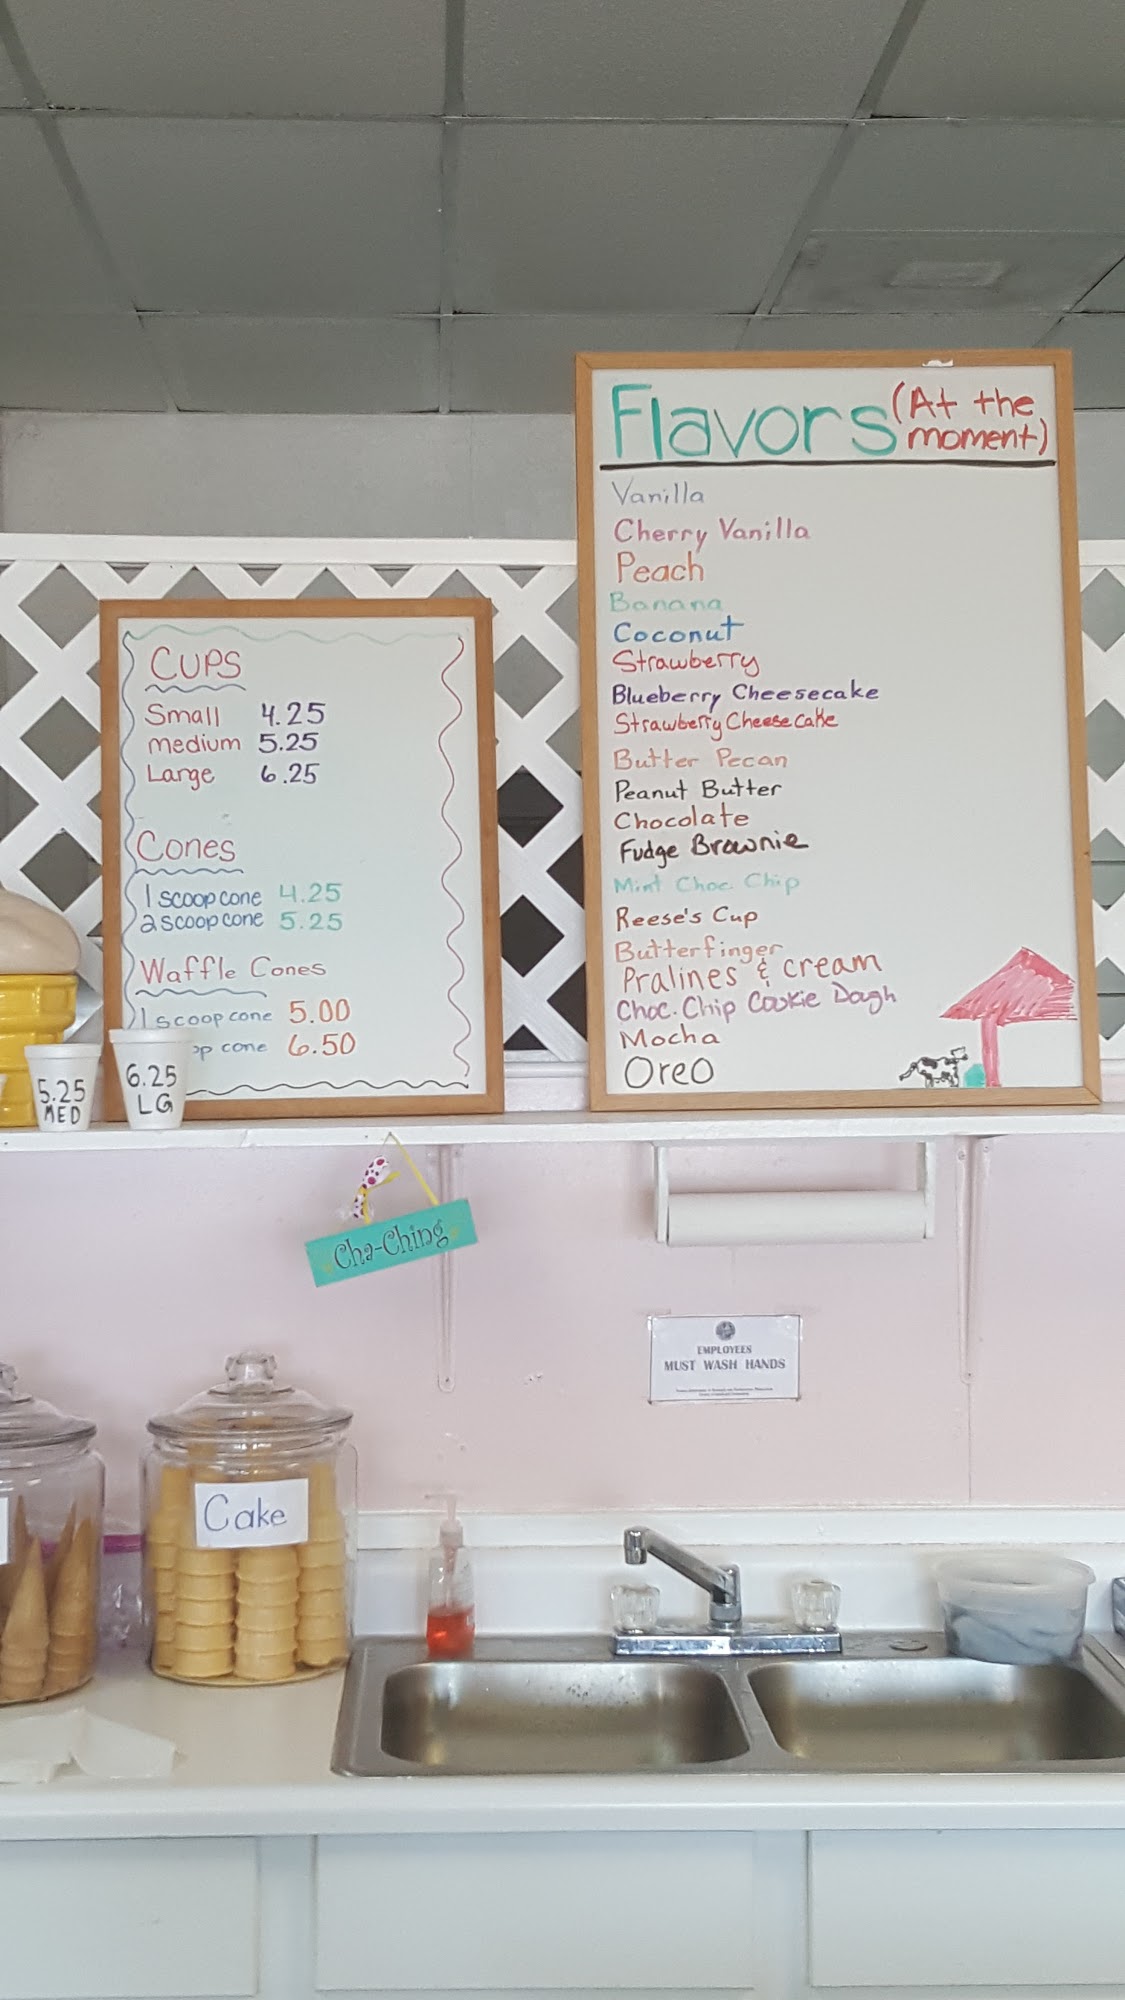 Flavors (At the moment)
Vanilla
Cherry Vanilla
Peach
Banana
Coconut
Strawberry
Blueberry Cheesecake
Strawberry Cheesecake
Butter Pecan
Peanut Butter
Chocolate
Fudge Brownie
Mint Choc. Chip
Reese's Cup
Butterfinger
Pralines & cream
Choc. Chip Cookie Dough
Mocha
Oreo
CUPS
Small 4.25
medium 5.25
Large 6.25
Cones
1 scoop cone 4.25
2 scoop cone 5.25
Waffle Cones
1 scoop cone 5.00
cone 6.50
5.25
MED
6.25
LG
Cha-Ching
EMPLOYEES
MUST WASH HANDS
Cake